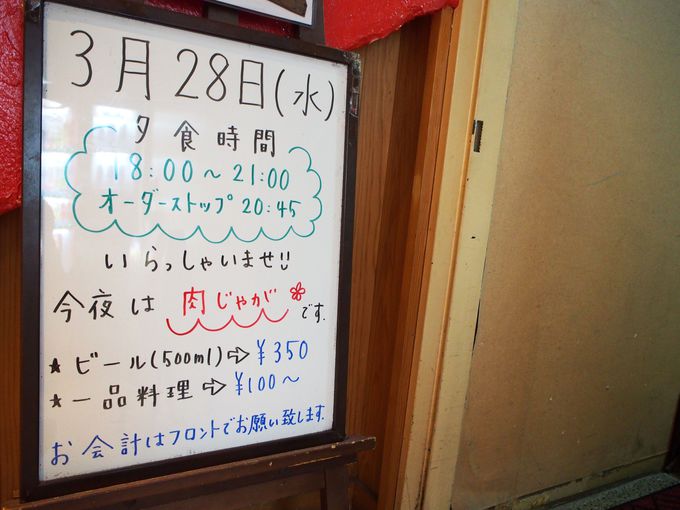 3月28日(水)
夕食時間
18:00～21:00
オーダーストップ 20:45
いらっしゃいませ!!
今夜は 肉じゃが です.
★ビール(500ml)⇨¥350
★一品料理⇨¥100～
お会計はフロントでお願い致します.